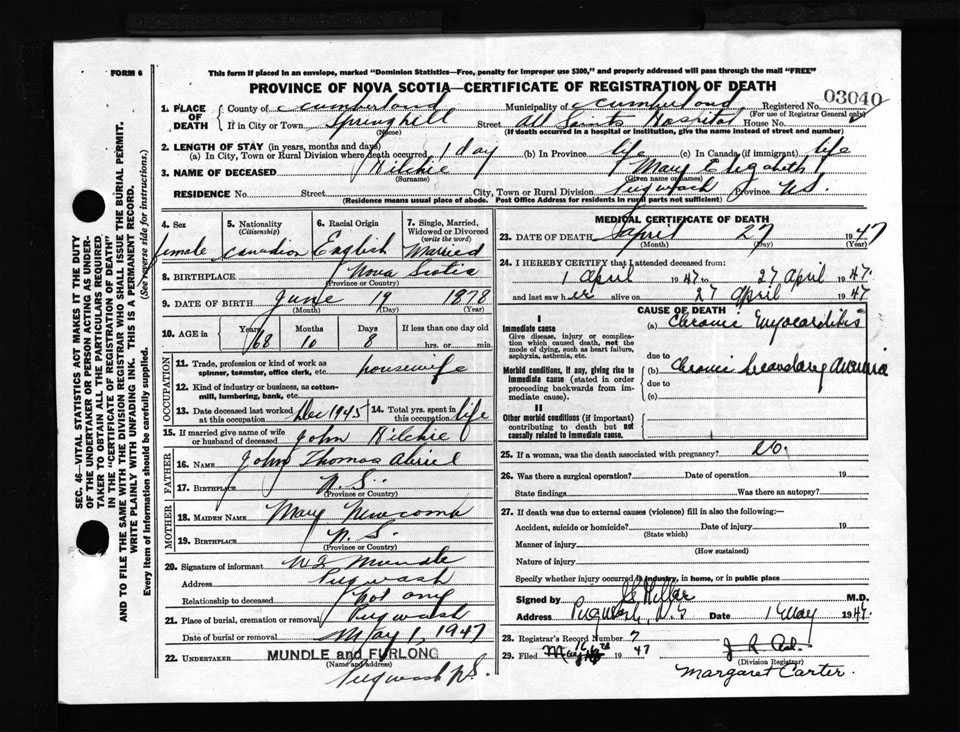 FORM 6
This form if placed in an envelope, marked "Dominion Statistics—Free, penalty for improper use $300," and properly addressed will pass through the mail "FREE"
PROVINCE OF NOVA SCOTIA—CERTIFICATE OF REGISTRATION OF DEATH
03040
1. PLACE OF DEATH County of Cumberland Municipality of Cumberland Registered No.
(For use of Registrar General only)
If in City or Town Springhill Street All Saints Hospital House No.
(Name) (If death occurred in a hospital or institution, give the name instead of street and number)
2. LENGTH OF STAY (in years, months and days)
(a) In City, Town or Rural Division where death occurred 1 day (b) In Province life (c) In Canada (if immigrant) life
3. NAME OF DECEASED Mary Elizabeth
(Surname) (Given name or names)
RESIDENCE No. Street City, Town or Rural Division Pugwash Province N.S.
(Residence means usual place of abode. Post Office Address for residents in rural parts not sufficient)
4. Sex female
5. Nationality (Citizenship) Canadian
6. Racial Origin English
7. Single, Married, Widowed or Divorced (write the word) Married
8. BIRTHPLACE Nova Scotia
(Province or Country)
9. DATE OF BIRTH June 19 1878
(Month) (Day) (Year)
10. AGE in Years 68 Months 10 Days 8 If less than one day old hrs. or min.
OCCUPATION
11. Trade, profession or kind of work as spinner, teamster, office clerk, etc. housewife
12. Kind of industry or business, as cotton-mill, lumbering, bank, etc.
13. Date deceased last worked at this occupation Dec 1945
14. Total yrs. spent in this occupation life
15. If married give name of wife or husband of deceased John
FATHER
16. NAME John Thomas
17. BIRTHPLACE N.S.
(Province or Country)
MOTHER
18. MAIDEN NAME Mary Newcomb
19. BIRTHPLACE N.S.
(Province or Country)
20. Signature of informant Mundle
Address Pugwash
Relationship to deceased not any
21. Place of burial, cremation or removal Pugwash
Date of burial or removal May 1, 1947
22. UNDERTAKER MUNDLE and FURLONG
(Name and address)
Pugwash N.S.
MEDICAL CERTIFICATE OF DEATH
23. DATE OF DEATH April 27 1947
(Month) (Day) (Year)
24. I HEREBY CERTIFY that I attended deceased from:
1 April 1947 to 27 April 1947
and last saw her alive on 27 April 1947
CAUSE OF DEATH
I
Immediate cause
Give disease, injury or complication which caused death, not the mode of dying, such as heart failure, asphyxia, asthenia, etc.
(a) Chronic Myocarditis
due to
Morbid conditions, if any, giving rise to immediate cause (stated in order proceeding backwards from immediate cause).
(b) Chronic Secondary Anemia
due to
(c)
II
Other morbid conditions (if important) contributing to death but not causally related to immediate cause.
25. If a woman, was the death associated with pregnancy? No.
26. Was there a surgical operation? Date of operation 19
State findings Was there an autopsy?
27. If death was due to external causes (violence) fill in also the following:—
Accident, suicide or homicide? Date of injury 19
(State which)
Manner of injury
(How sustained)
Nature of injury
Specify whether injury occurred in industry, in home, or in public place
Signed by M.D.
Address Pugwash, N.S Date 1 May 1947.
28. Registrar's Record Number 7
29. Filed 1947
(Division Registrar)
Margaret Carter.
SEC. 46—VITAL STATISTICS ACT MAKES IT THE DUTY
OF THE UNDERTAKER OR PERSON ACTING AS UNDER-
TAKER TO OBTAIN ALL THE PARTICULARS REQUIRED
IN THE "CERTIFICATE OF REGISTRATION OF DEATH"
AND TO FILE THE SAME WITH THE DIVISION REGISTRAR WHO SHALL ISSUE THE BURIAL PERMIT.
WRITE PLAINLY WITH UNFADING INK. THIS IS A PERMANENT RECORD.
Every item of information should be carefully supplied. (See reverse side for instructions.)